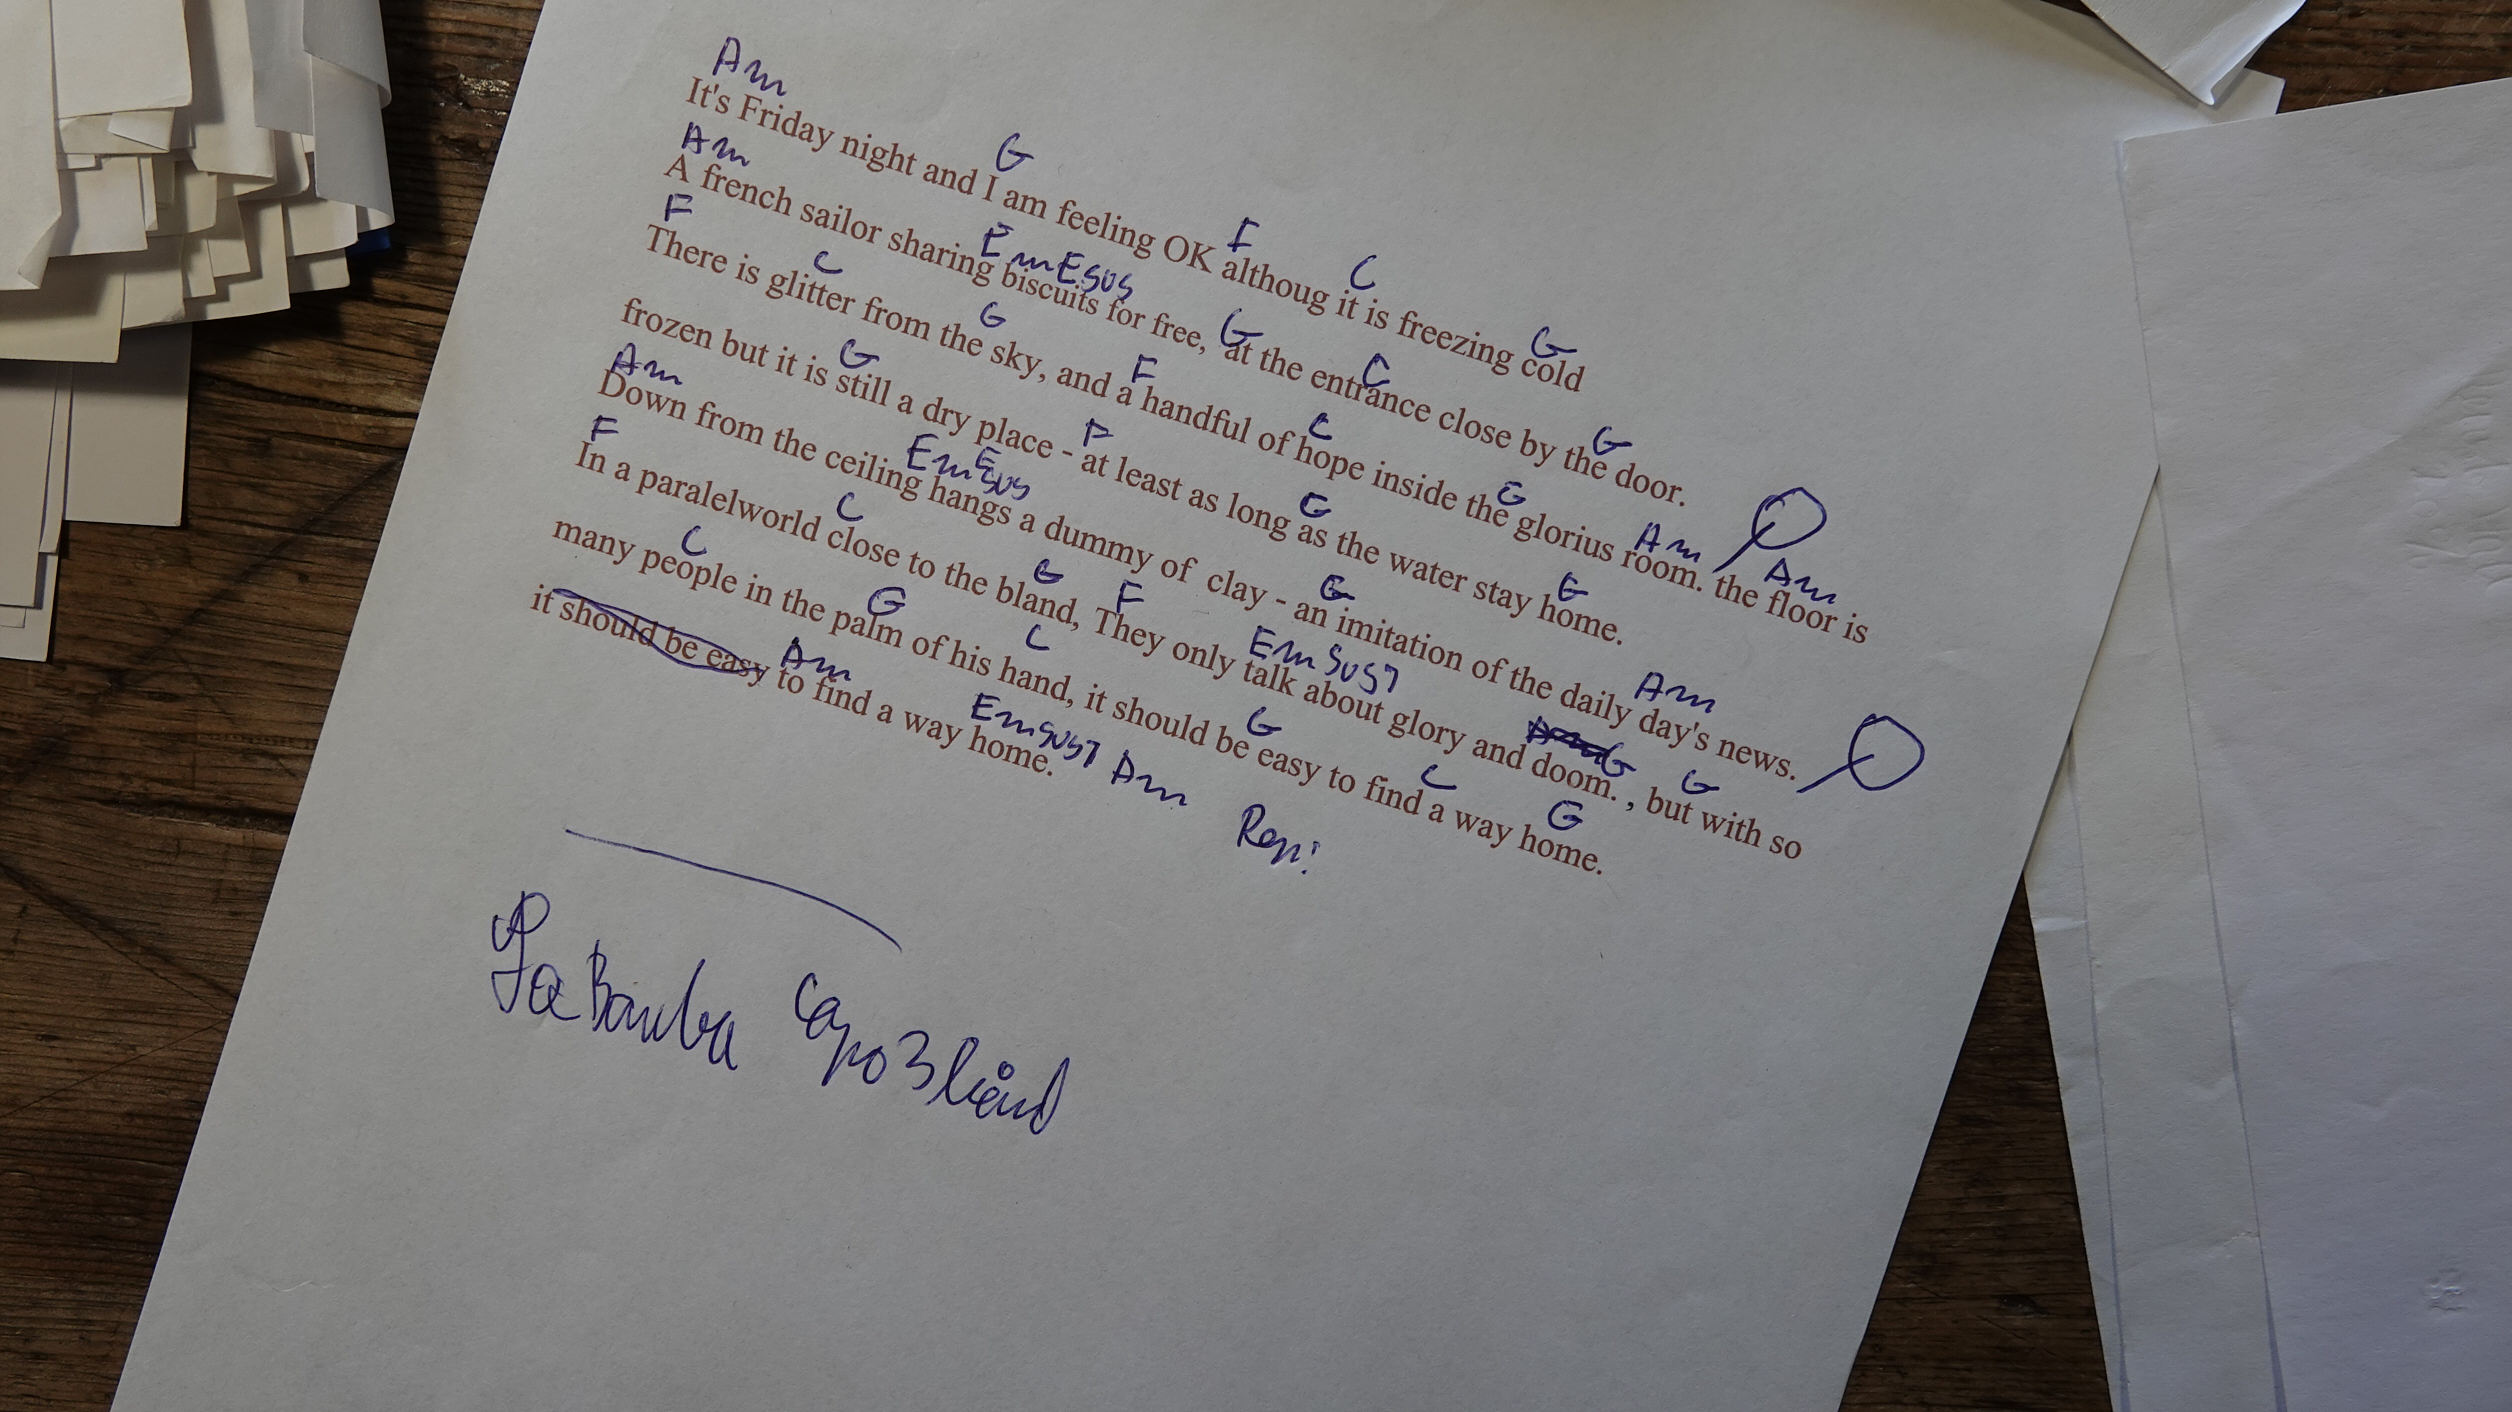 Am G F C G
It's Friday night and I am feeling OK althoug it is freezing cold
Am EmEsus G C G
A french sailor sharing biscuits for free, at the entrance close by the door.
F C G F C G Am Am
There is glitter from the sky, and a handful of hope inside the glorius room. the floor is
G F G G
frozen but it is still a dry place - at least as long as the water stay home.
Am EmEsus G Am
Down from the ceiling hangs a dummy of clay - an imitation of the daily day's news.
F C G F Emsus7 Am G G
In a paralelworld close to the bland, They only talk about glory and doom. , but with so
C G C G C G
many people in the palm of his hand, it should be easy to find a way home.
Am Emsus7 Am Rep:
it should be easy to find a way home.
La Bamba Capo 3 band